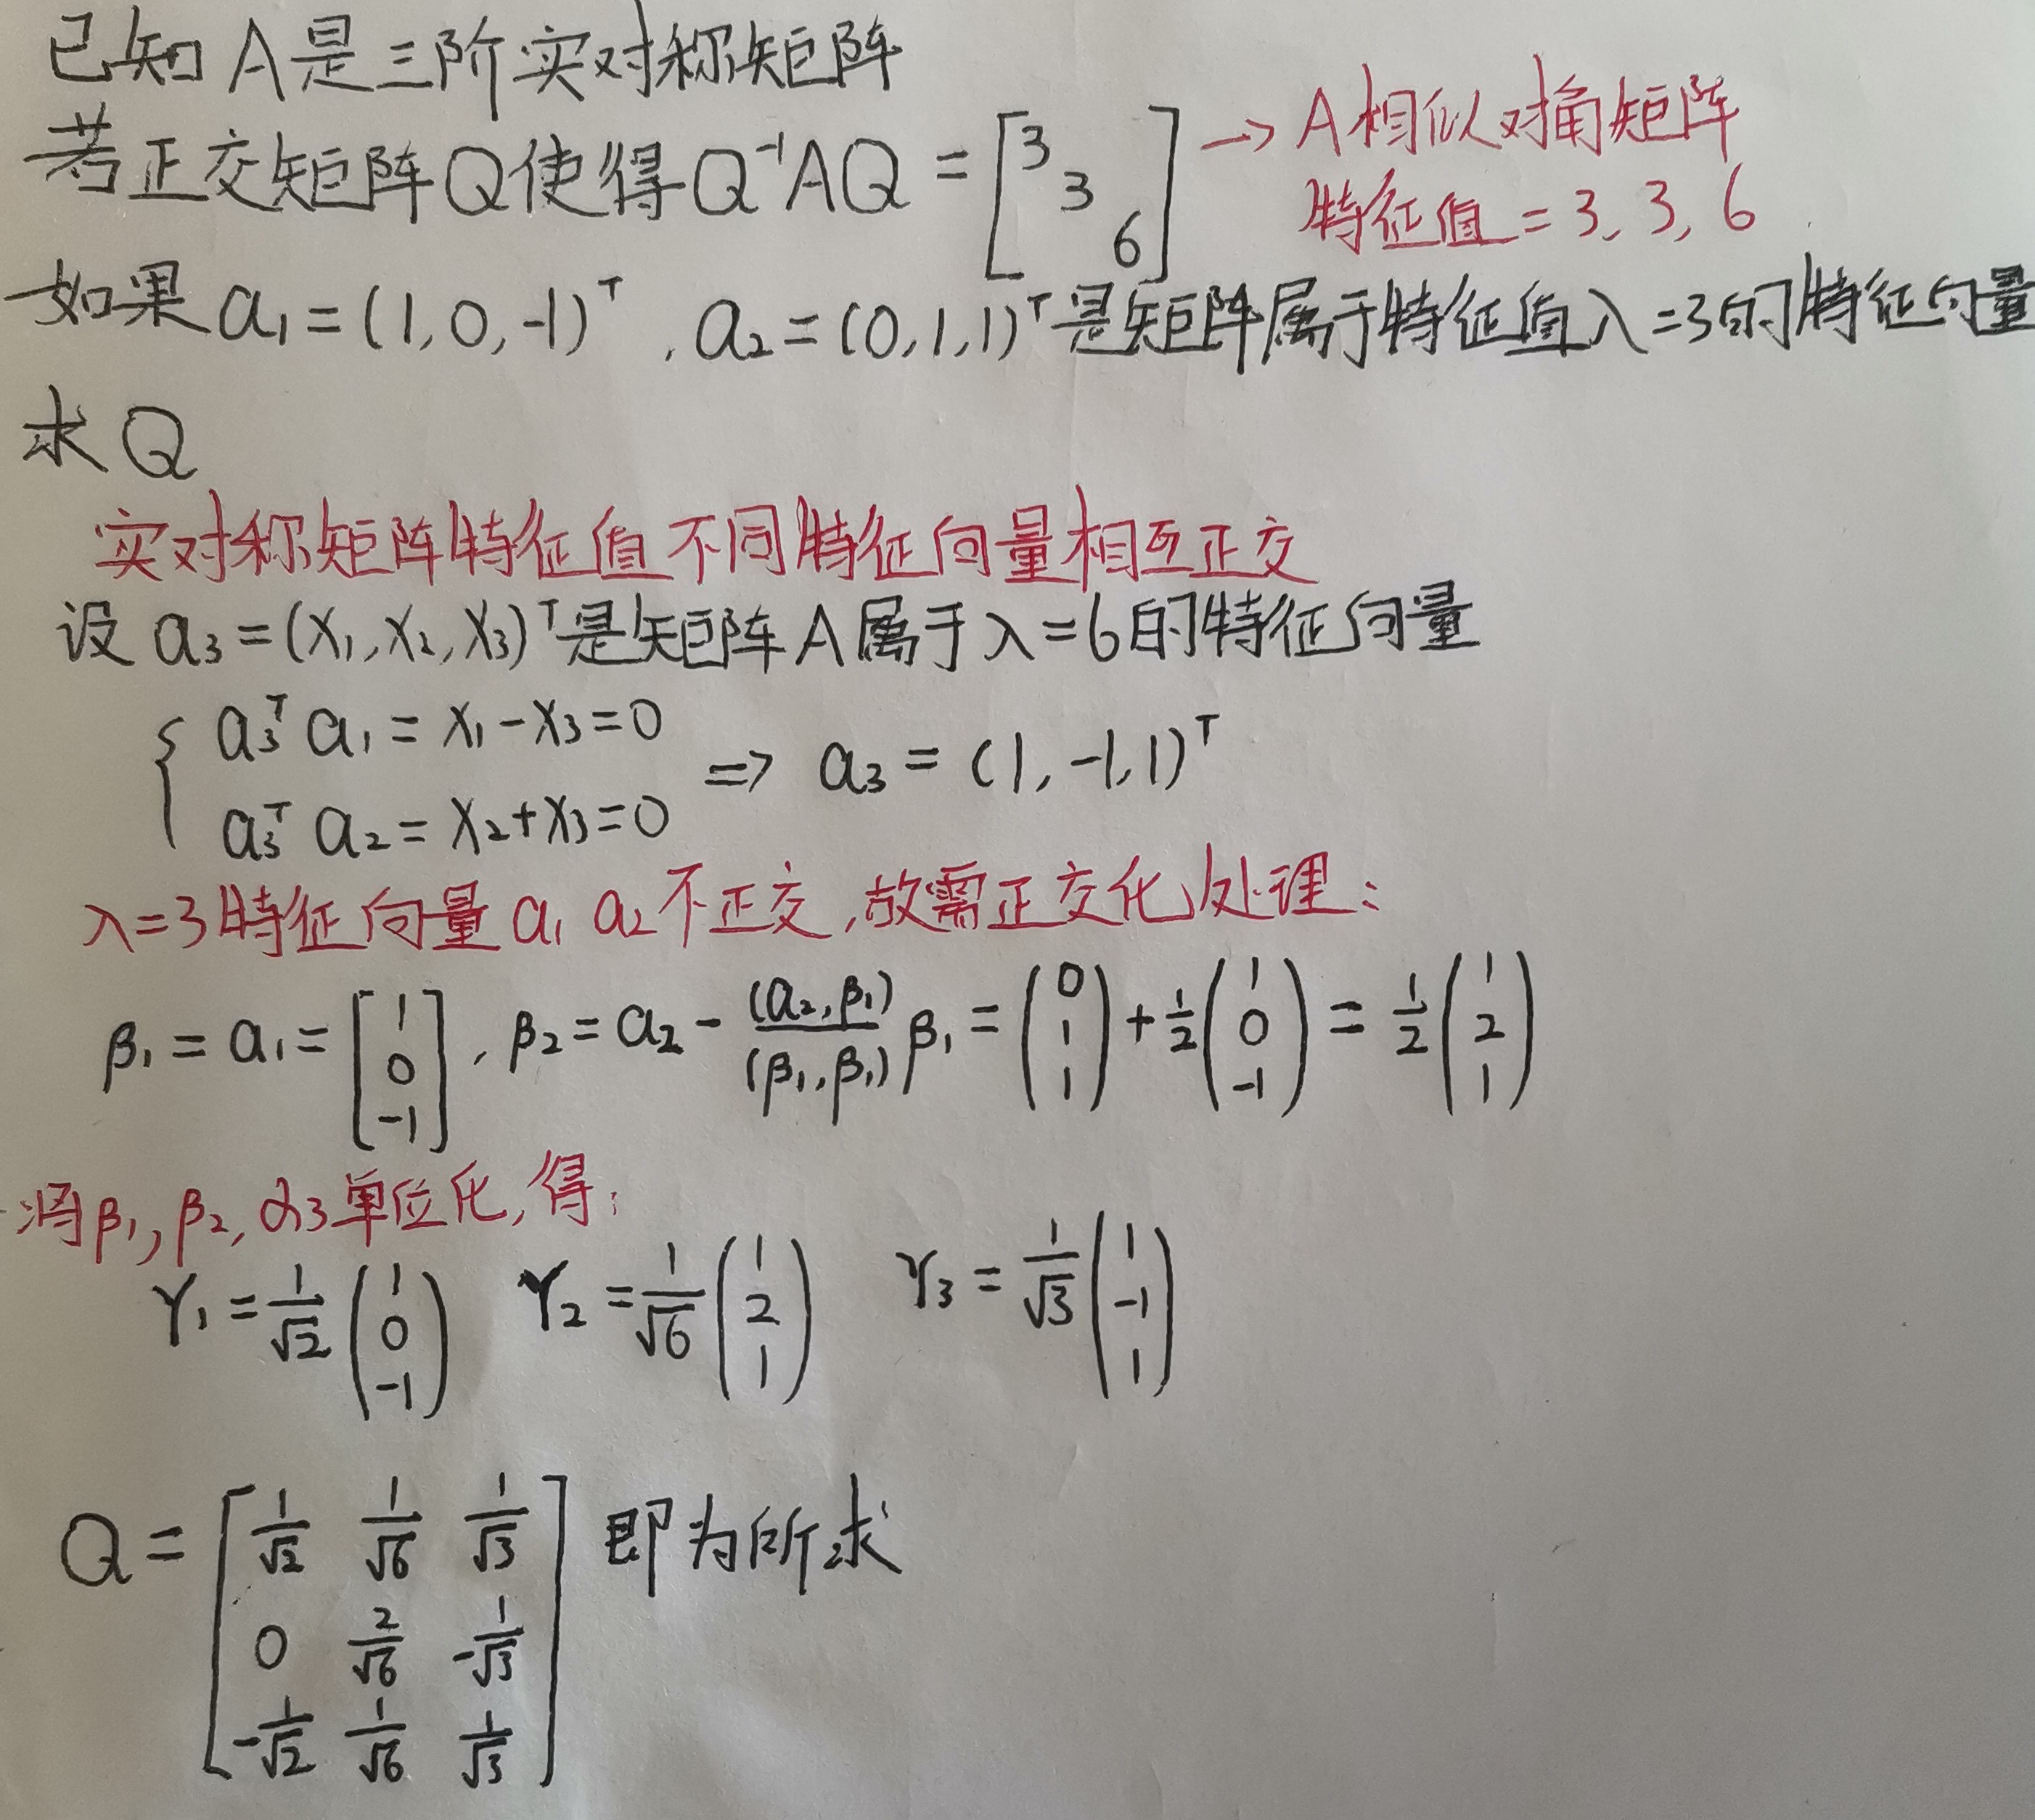 已知A是三阶实对称矩阵
若正交矩阵Q使得Q⁻¹AQ = [3 3 6] → A相似对角矩阵
特征值 = 3, 3, 6
如果 a₁ = (1, 0, -1)ᵀ , a₂ = (0, 1, 1)ᵀ 是矩阵属于特征值λ=3的特征向量
求Q
实对称矩阵特征值不同特征向量相互正交
设 a₃ = (x₁, x₂, x₃)ᵀ 是矩阵A属于λ=6的特征向量
{ a₃ᵀ a₁ = x₁ - x₃ = 0
a₃ᵀ a₂ = x₂ + x₃ = 0 ⇒ a₃ = (1, -1, 1)ᵀ
λ=3特征向量 a₁ a₂ 不正交,故需正交化处理:
β₁ = a₁ = [1 0 -1] , β₂ = a₂ - (a₂, β₁)/(β₁, β₁) β₁ = (0 1 1) + 1/2 (1 0 -1) = 1/2 (1 2 1)
将β₁, β₂, α₃单位化, 得:
γ₁ = 1/√2 (1 0 -1) γ₂ = 1/√6 (1 2 1) γ₃ = 1/√3 (1 -1 1)
Q = [1/√2 1/√6 1/√3 即为所求
0 2/√6 -1/√3
-1/√2 1/√6 1/√3]